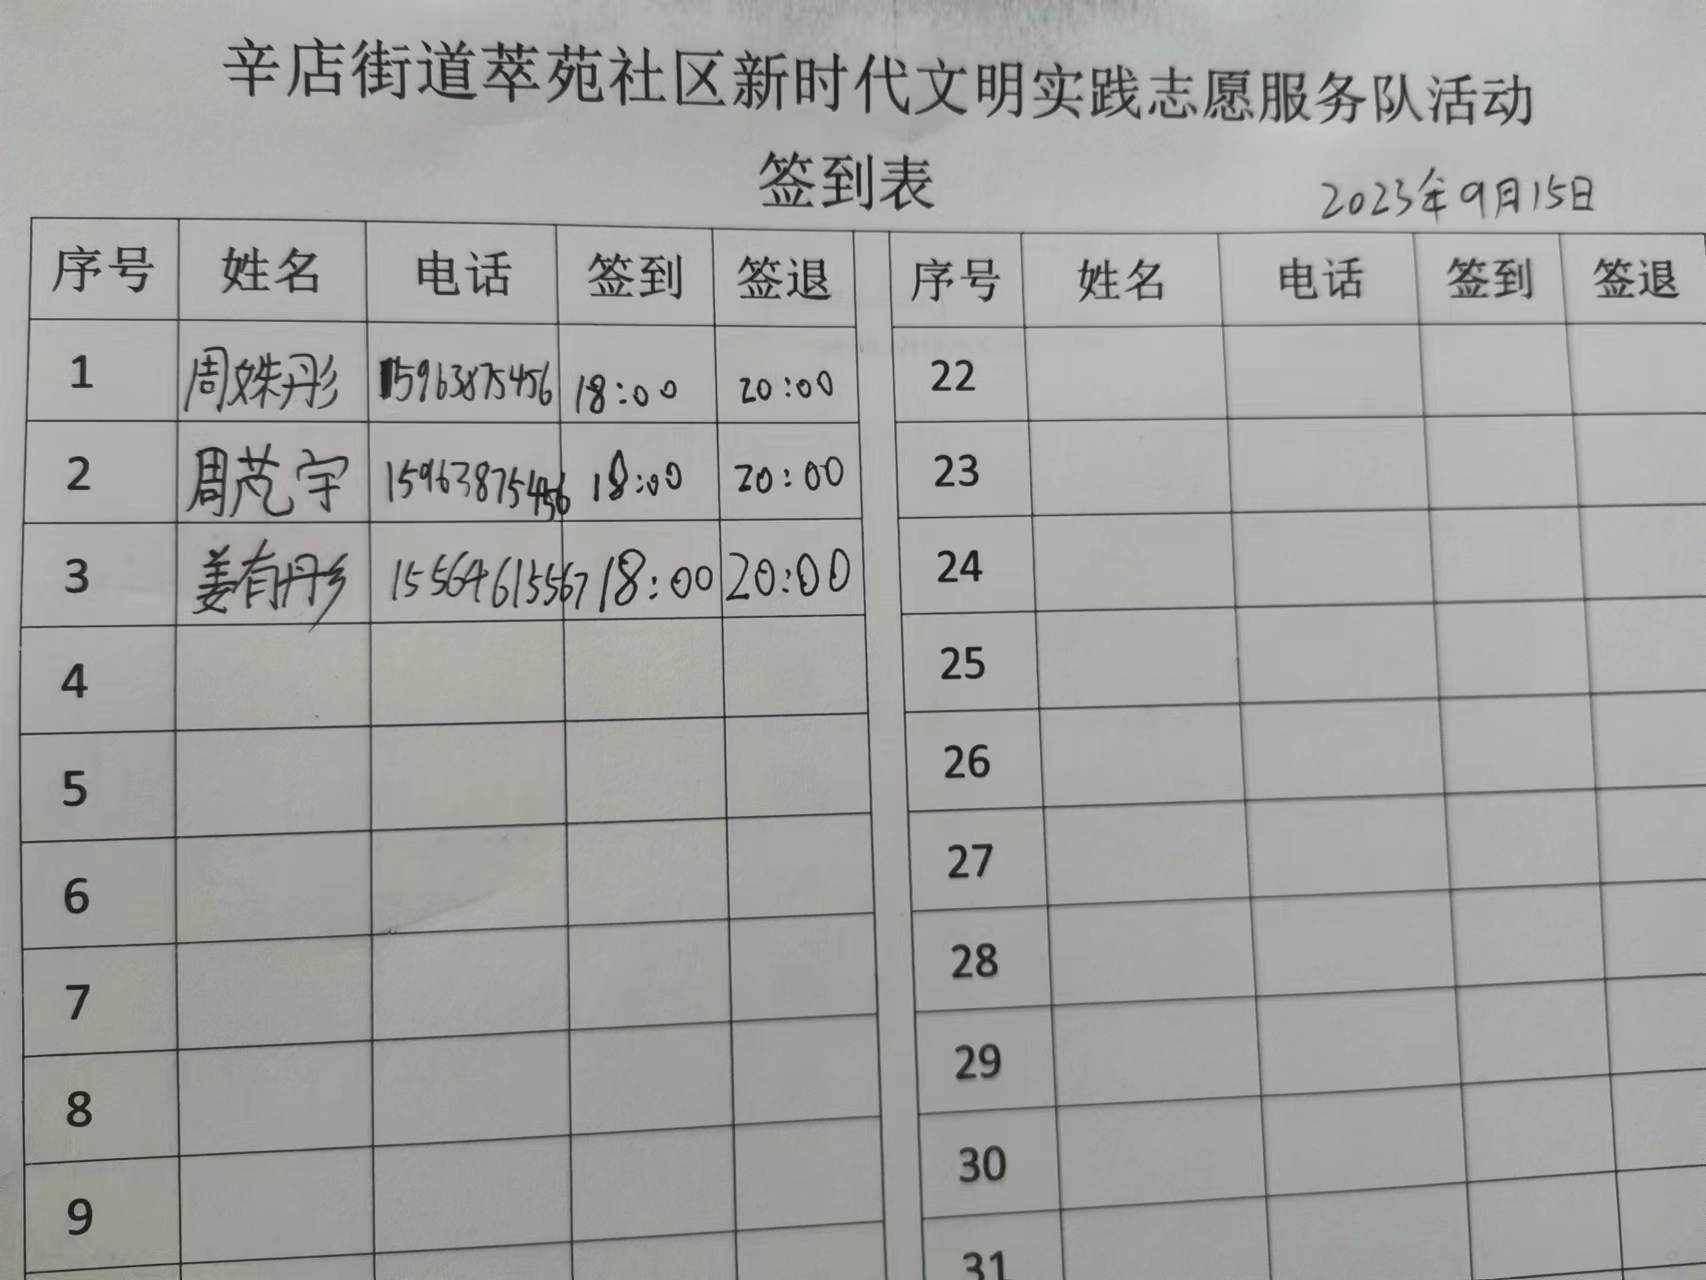 辛店街道萃苑社区新时代文明实践志愿服务队活动
签到表
2023年9月15日
序号 姓名 电话 签到 签退 序号 姓名 电话 签到 签退
1 周姝彤 15963875456 18:00 20:00 22
2 周芃宇 15963875456 18:00 20:00 23
3 姜有彤 15564615567 18:00 20:00 24
4 25
5 26
6 27
7 28
8 29
9 30
31